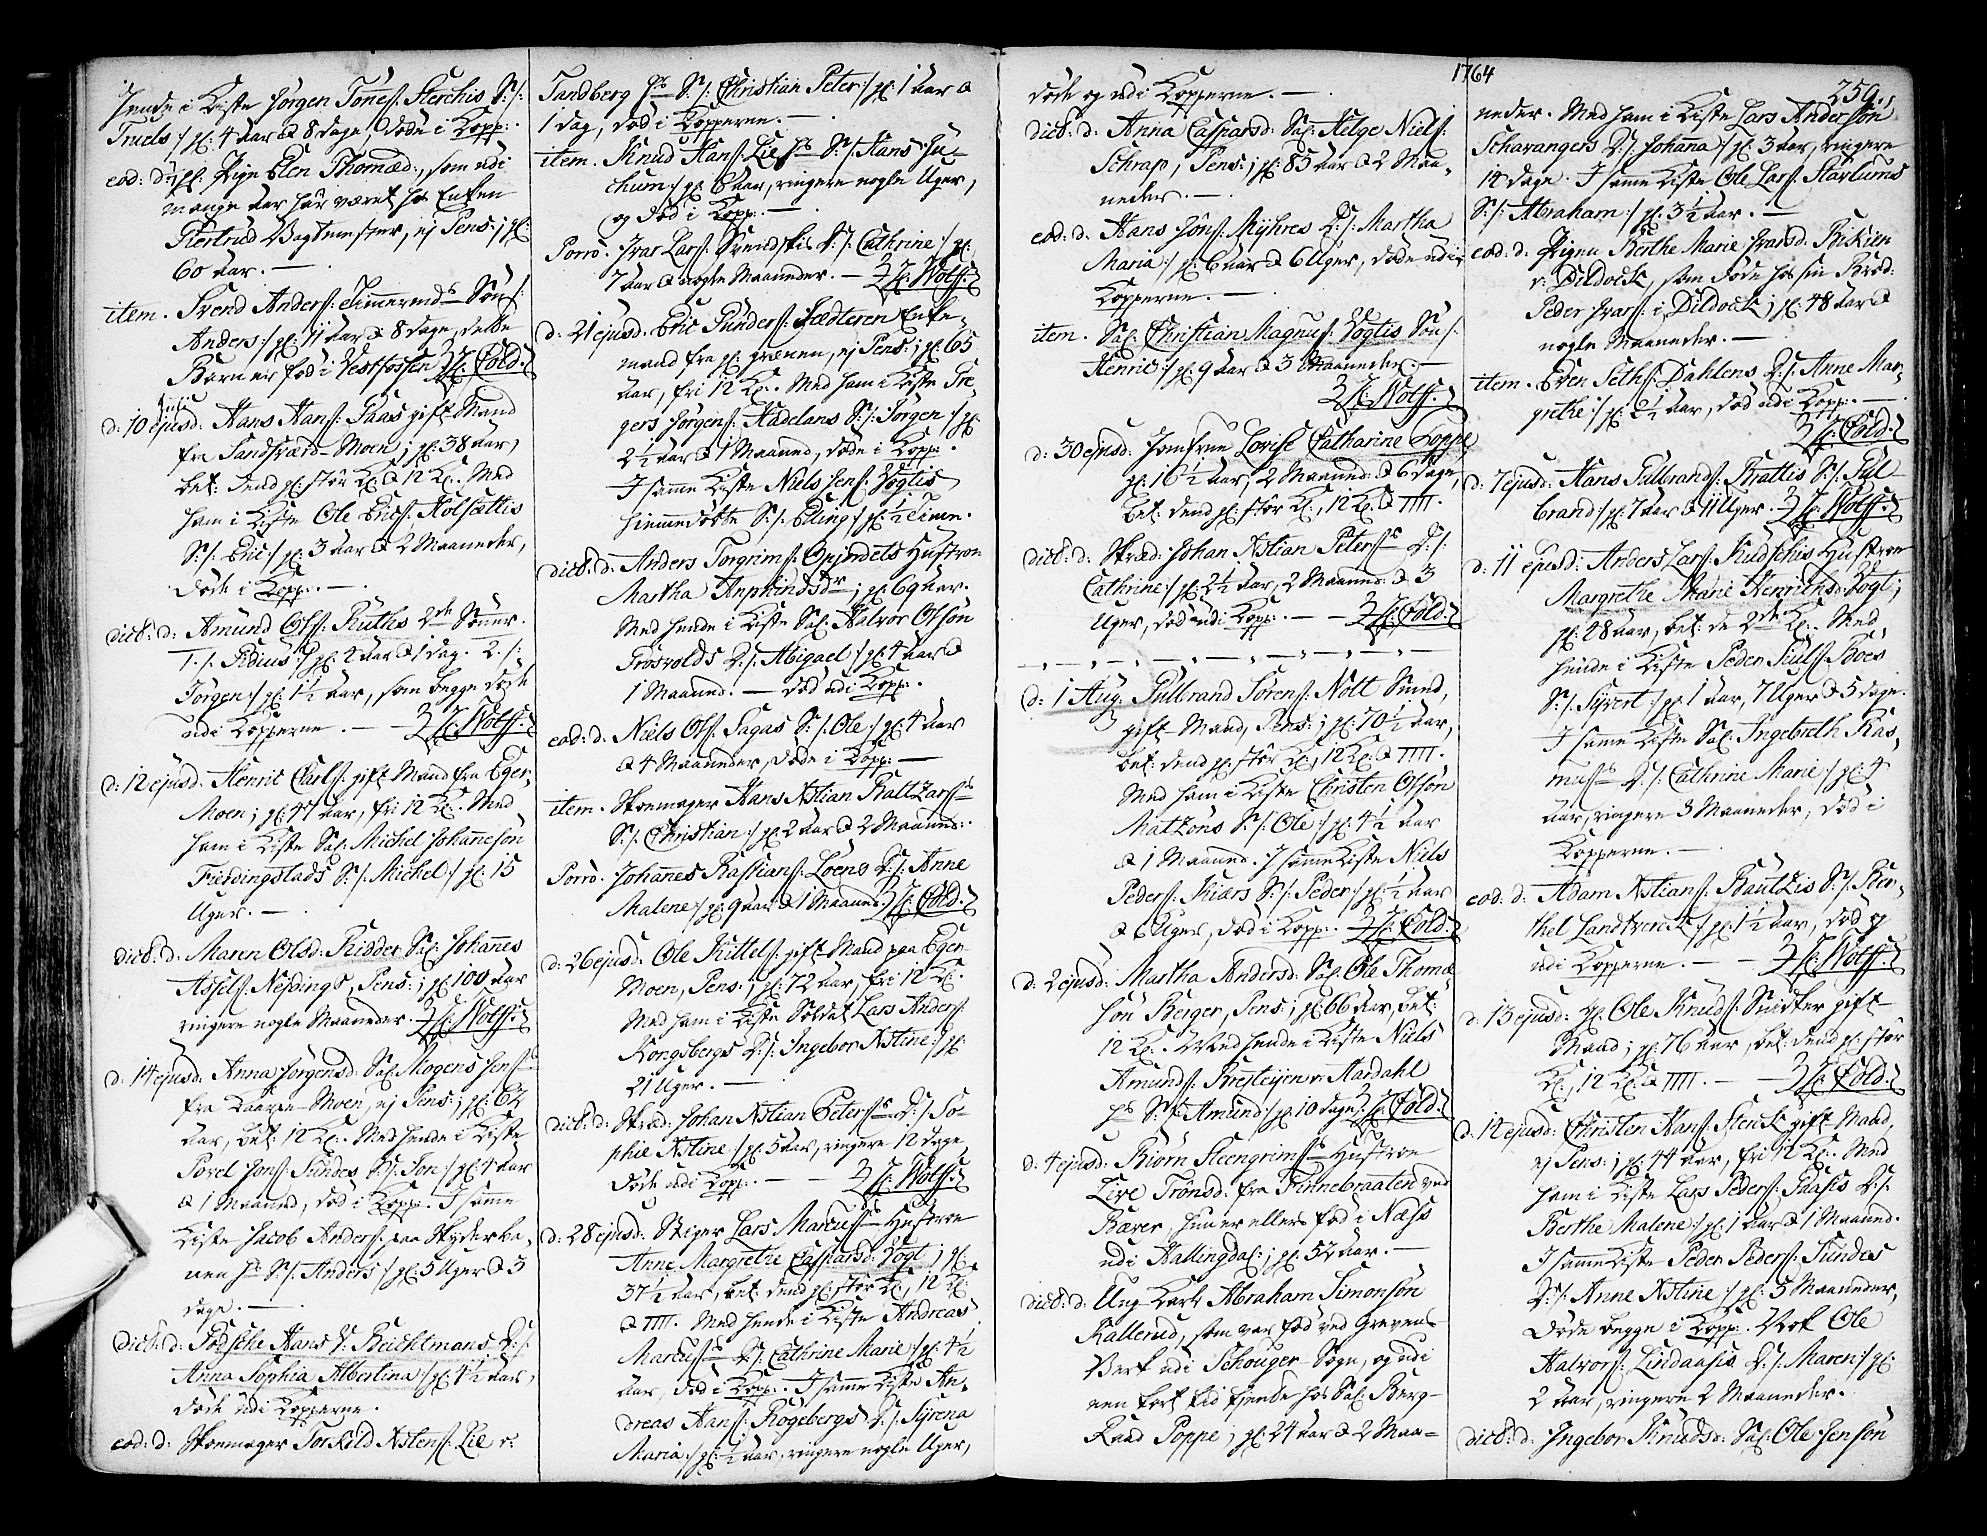 hende i Kiste Jørgen Tønes: Sterchis S:/:
Truels:/ gl: 4 Aar & 8 dage, døde i Kopp:
eod: d: gl: Pige Elen Thomæd:, som udi
mange Aar har været hos Enken
Giertrud Vagtmester, ej Pens:; gl:
60 Aar. —
item. Svend Anders: Timmermds Søn/:
Anders:/ gl: 11 Aar & 8 dage, dette
Barn er fød i Vestfossen H: Cold.
Julii
d: 10 ejusd: Hans Hans: Gaas gift Mand
fra Sandsværd-Moen; gl: 38 Aar,
bet: dend gl: stör Kl: & 12 Kl: Med
ham i Kiste Ole Erics: Kolsættis
S:/: Eric:/ gl: 3 Aar & 2 Maaneder,
døde i Kopp: —
dict: d: Amund Ols: Ruths 2de Sønner.
1./. Pedius:/ gl: 4 Aar & 1 dag. 2./:
Jørgen:/ gl: 1½ Aar, som begge døde
udi Kopperne. — H: Wolff.
d: 12 ejusd: Henric Carls: gift Mand fra Eger-
Moen; gl: 47 Aar, fri 12 Kl: Med
ham i Kiste Sal: Michel Johannesøn
Fierdingstads S:/: Michel:/ gl: 15
Uger. —
dict: d: Maren Olsd: Ridder Sal: Johannes
Assels: Nesdings, Pens:; gl: 100 Aar
ringere nogle Maaneder. H: Wolff.
d: 14 ejusd: Anna Jørgensd: Sal: Mogens Jens:
fra Laagen-Moen, ej Pens:; gl: 62
Aar, bet: 12 Kl: Med hende i Kiste
Povel Jons: Sundes S:/: Jon:/ gl: 4 Aar
& 1 Maaned, død i Kopp: I samme
Kiste Jacob Anders: paa Skyderba-
nen hs S:/: Anders:/ gl: 5 Uger & 3
dage. —
dict: d: Podsche Hans v: Beichtmans D:/:
Anna Sophia Albertina:/ gl: 4½ Aar,
døde udi Kopperne.
eod: d: Skoemager Torkild Nstens: Lie v:
Tandberg hs S:/: Christian Peter:/ gl: 1 Aar &
1 dag, død i Kopperne. —
item. Knud Hans: Lie hs S:/: Hans Ju-
chum:/ gl: 6 Aar, ringere nogle Uger,
og død i Kopp: —
Porro. Ivar Lars: Svendskis D:/: Cathrine:/ gl:
7 Aar & nogle Maaneder. — H: Wolff.
d: 21 ejusd: Eric Gunders: Sædteren Enke-
mand fra gl: grænen, ej Pens:; gl: 65
Aar, fri 12 Kl: Med ham i Kiste Tre-
gers Jørgens: Hadelans S:/: Jørgen:/ gl:
2½ Aar & 1 Maaned, døde i Kopp:
I samme Kiste Niels Jens: Vogtis
hiemmedøbte S:/: Elling:/ gl: ½ Time.
dict: d: Anders Torgrims: Gpjndels Hustroe
Martha Anphindsdr; gl: 69 Aar.
Med hende i Kiste Sal: Halvor Olsøn
Frosvolds D:/: Abigael:/ gl: 4 Aar &
1 Maaned. — død udi Kopp:
eod: d: Niels Ols: Sagas S:/: Ole:/ gl: 4 Aar
& 4 Maaneder, døde i Kopp: —
item. Skoemager Hans Nstian Baltzarss
S:/: Christian:/ gl: 2 Aar & 2 Maaned:
Porro. Johannes Bastians: Loens D:/: Anne
Malene:/ gl: 9 Aar & 1 Maaned: H: Cold.
d: 26 ejusd: Ole Kittels: gift Mand paa Eger-
Moen, Pens:; gl: 72 Aar, fri 12 Kl:
Med ham i Kiste Soldat Lars Anders:
Kongsbergs D:/: Ingebor Nstine:/ gl:
21 Uger. —
dict: d: Skræd: Johan Nstian Peterss D:/: So-
phie Nstine:/ gl: 5 Aar, ringere 12 dage,
døde udi Kopp: — H: Wolff.
d: 28 ejusd: Stiger Lars Marcuss: Hustroe
Anne Margrethe Caspersd: Vogt; gl:
37½ Aar, bet: dend gl: stör Kl:, 12 Kl:
& IIII. Med hende i Kiste Andreas
Marcuss: D:/: Cathrine Marie:/ gl: 4½
Aar, død i Kopp: I samme Kiste An-
dreas Hans: Rogebergs D:/: Syrena
Maria:/ gl: ½ Aar, ringere nogle Uger,
1764
250.
døde og udi Kopperne. —
dict: d: Anna Casparsd: Sal: Helge Niels:
Schrap, Pens:; gl: 85 Aar & 2 Maa-
neder. —
eod: d. Hans Jøns: Myhres D:/: Martha
Maria:/ gl: 6 Aar & 6 Uger, døde udi
Kopperne. —
item. Sal: Christian Magnus: Vogtis Søn/:
Henric:/ gl: 9 Aar & 3 Maaneder. —
H: Wolff.
d: 30 ejusd: Jomfrue Lovise Catharine Poppe
gl: 16½ Aar, 2 Maaned: & 6 dage,
bet: dend gl: stör Kl:, 12 Kl: & IIII.
dict: d: Skræd: Johan Nstian Peterss D:/:
Cathrine:/ gl: 2½ Aar, 2 Maaned: & 3
Uger, død udi Kopp: — H: Cold.
d: 1 Aug: Gulbrand Sørens: Nolt Smed,
gift Mand, Pens:; gl: 70½ Aar,
bet: dend gl: stör Kl:, 12 Kl: & IIII.
Med ham i Kiste Christen Olsøn
Matzöns S:/: Ole:/ gl: 4½ Aar
& 1 Maaned. I samme Kiste Niels
Peders: Kiærs S:/: Peder:/ gl: ½ Aar
& 6 Uger, død i Kopp: H: Cold.
d: 2 ejusd: Martha Andersd: Sal: Ole Thomæ
søn Berger, Pens:; gl: 66 Aar, bet:
12 Kl: Med hende i Kiste Niels
Amunds: Bresteijen v: Aardahl
hs S:/: Amund:/ gl: 10 dage. H: Cold.
d: 4 ejusd: Biørn Steengrimss Hustroe
Live Trönsd: fra Finnebraaten ved
Bæver, hun er ellers fød i Næss
udi Hallingdal:; gl: 52 Aar. —
dict: d: Ung Karl Abraham Simonsøn
Kallerud, som var fød ved Grevens-
Verk udi Schouger Sogn, og udi
nen kort tid tjente hos Sal: Berg-
Raad Poppe; gl: 24 Aar & 2 Maa-
neder. Med ham i Kiste Lars Andersøn
Schavangers D:/: Johanna:/ gl: 3 Aar, ringere
14 dage. I samme Kiste Ole Lars: Skarlums
S:/: Abraham:/ gl: 3½ Aar. —
eod: d: Pigen Berthe Marie Ivarsd: Bekien
v: Dildock, som døde hos sin Brod:
Peder Ivars: i Dildock; gl: 48 Aar &
nogle Maaneder. —
item. Even Seths: Dahlens D:/: Anne Mar-
grethe:/ gl: 2½ Aar, død udi Kopp: —
H: Cold.
d: 7 ejusd: Hans Gulbrands: Brattis S:/: Gul-
brand:/ gl: 7 Aar & 11 Uger. H: Wolff.
d: 11 ejusd: Anders Lars: Kudschis Hustroe
Margrethe Marie Henrichsd: Vogt;
gl: 28 Aar, bet: de 2de Kl: Med
hende i Kiste Peder Juuls: Boes
S:/: Syvert:/ gl: 1 Aar, 7 Uger & 5 dage.
I samme Kiste Sal: Ingebreth Ras-
muss: D:/: Cathrine Marie:/ gl: 4
Aar, ringere 3 Maaneder, død i
Kopperne. —
eod: d: Adam Nstians: Bautzis S:/: Ber-
thel Landtverck:/ gl: 1½ Aar, død og
udi Kopperne. — H: Wolff.
d: 13 ejusd: gl: Ole Knuds: Snidker gift
Mand; gl: 76 Aar, bet: dend gl: stör
Kl:, 12 Kl: & IIII. — H: Cold.
d: 14 ejusd: Christen Hans: Sterck gift Mand,
ej Pens:; gl: 44 Aar, fri 12 Kl: Med
ham i Kiste Lars Peders: Gaasis D:/:
Berthe Malene:/ gl: 1 Aar & 1 Maaned.
I samme Kiste Peder Peders: Sundes
D:/: Anne Nstine:/ gl: 5 Maaneder,
døde begge i Kopp: Nok Ole
Halvors: Lindaasis D:/: Maren:/ gl:
2 Aar, ringere 2 Maaneder.
dict: d: Ingebor Knudsd: Sal: Ole Jensøn